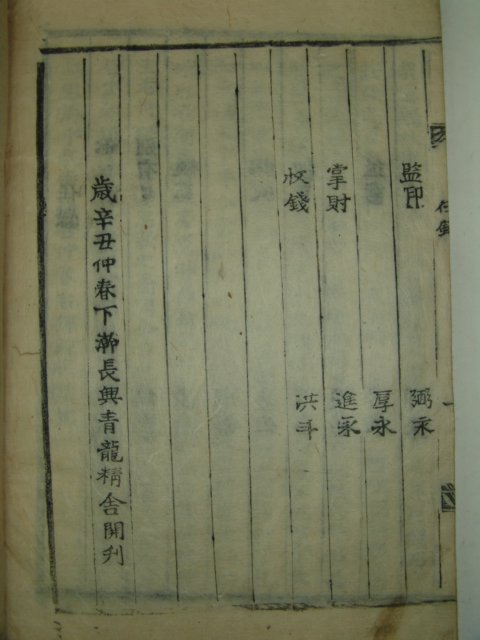 任錄
一
監印 弼永
厚永
掌財 進永
收錢 洪斗
歲辛丑仲春下澣長興青龍精舍開刋